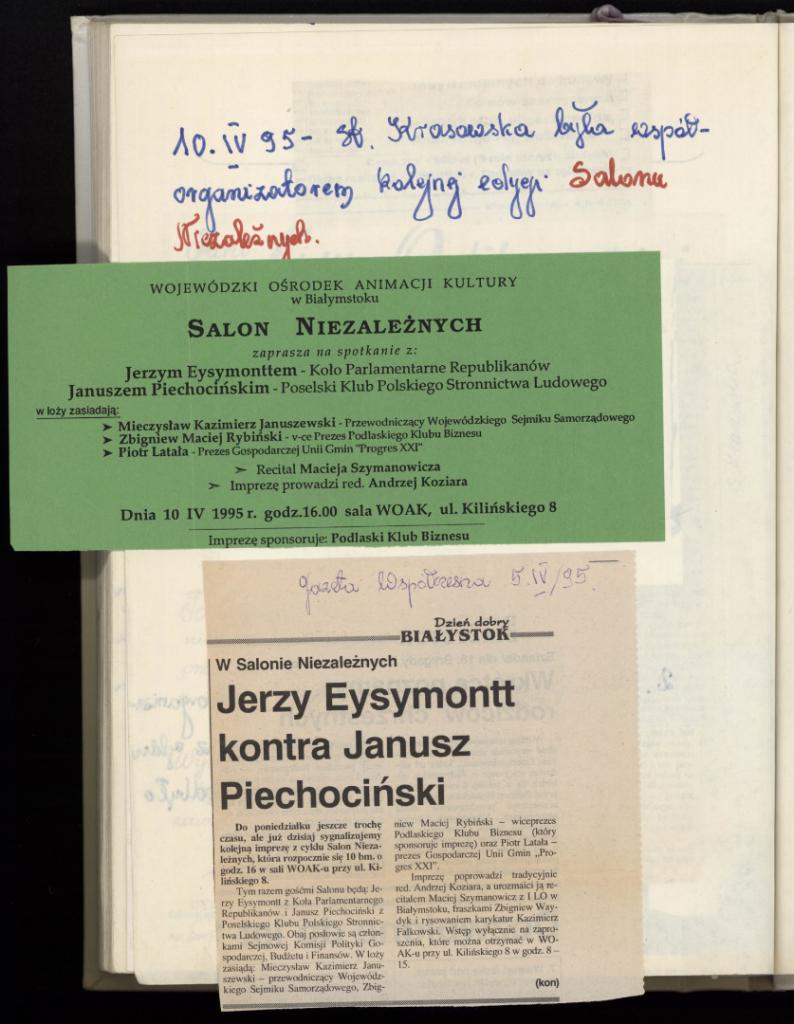 10. IV 95 - St. Krasowska była współ-
organizatorem kolejnej edycji Salonu
Niezależnych.
WOJEWÓDZKI OŚRODEK ANIMACJI KULTURY
w Białymstoku
SALON NIEZALEŻNYCH
zaprasza na spotkanie z:
Jerzym Eysymonttem - Koło Parlamentarne Republikanów
Januszem Piechocińskim - Poselski Klub Polskiego Stronnictwa Ludowego
w loży zasiadają:
➤ Mieczysław Kazimierz Januszewski - Przewodniczący Wojewódzkiego Sejmiku Samorządowego
➤ Zbigniew Maciej Rybiński - v-ce Prezes Podlaskiego Klubu Biznesu
➤ Piotr Latała - Prezes Gospodarczej Unii Gmin "Progres XXI"
➤ Recital Macieja Szymanowicza
➤ Imprezę prowadzi red. Andrzej Koziara
Dnia 10 IV 1995 r. godz.16.00 sala WOAK, ul. Kilińskiego 8
Imprezę sponsoruje: Podlaski Klub Biznesu
Gazeta Współczesna 5.IV/95
Dzień dobry
BIAŁYSTOK
W Salonie Niezależnych
Jerzy Eysymontt
kontra Janusz
Piechociński
Do poniedziałku jeszcze trochę
czasu, ale już dzisiaj sygnalizujemy
kolejną imprezę z cyklu Salon Nieza-
leżnych, która rozpocznie się 10 bm. o
godz. 16 w sali WOAK-u przy ul. Ki-
lińskiego 8.
Tym razem gośćmi Salonu będą: Je-
rzy Eysymontt z Koła Parlamentarnego
Republikanów i Janusz Piechociński z
Poselskiego Klubu Polskiego Stronnic-
twa Ludowego. Obaj posłowie są człon-
kami Sejmowej Komisji Polityki Go-
spodarczej, Budżetu i Finansów. W loży
zasiądą: Mieczysław Kazimierz Janu-
szewski – przewodniczący Wojewódz-
kiego Sejmiku Samorządowego, Zbig-
niew Maciej Rybiński – wiceprezes
Podlaskiego Klubu Biznesu (który
sponsoruje imprezę) oraz Piotr Latała –
prezes Gospodarczej Unii Gmin „Pro-
gres XXI".
Imprezę poprowadzi tradycyjnie
red. Andrzej Koziara, a urozmaici ją re-
citalem Maciej Szymanowicz z I LO w
Białymstoku, fraszkami Zbigniew Way-
dyk i rysowaniem karykatur Kazimierz
Falkowski. Wstęp wyłącznie na zapro-
szenia, które można otrzymać w WO-
AK-u przy ul. Kilińskiego 8 w godz. 8 –
15.
(kon)